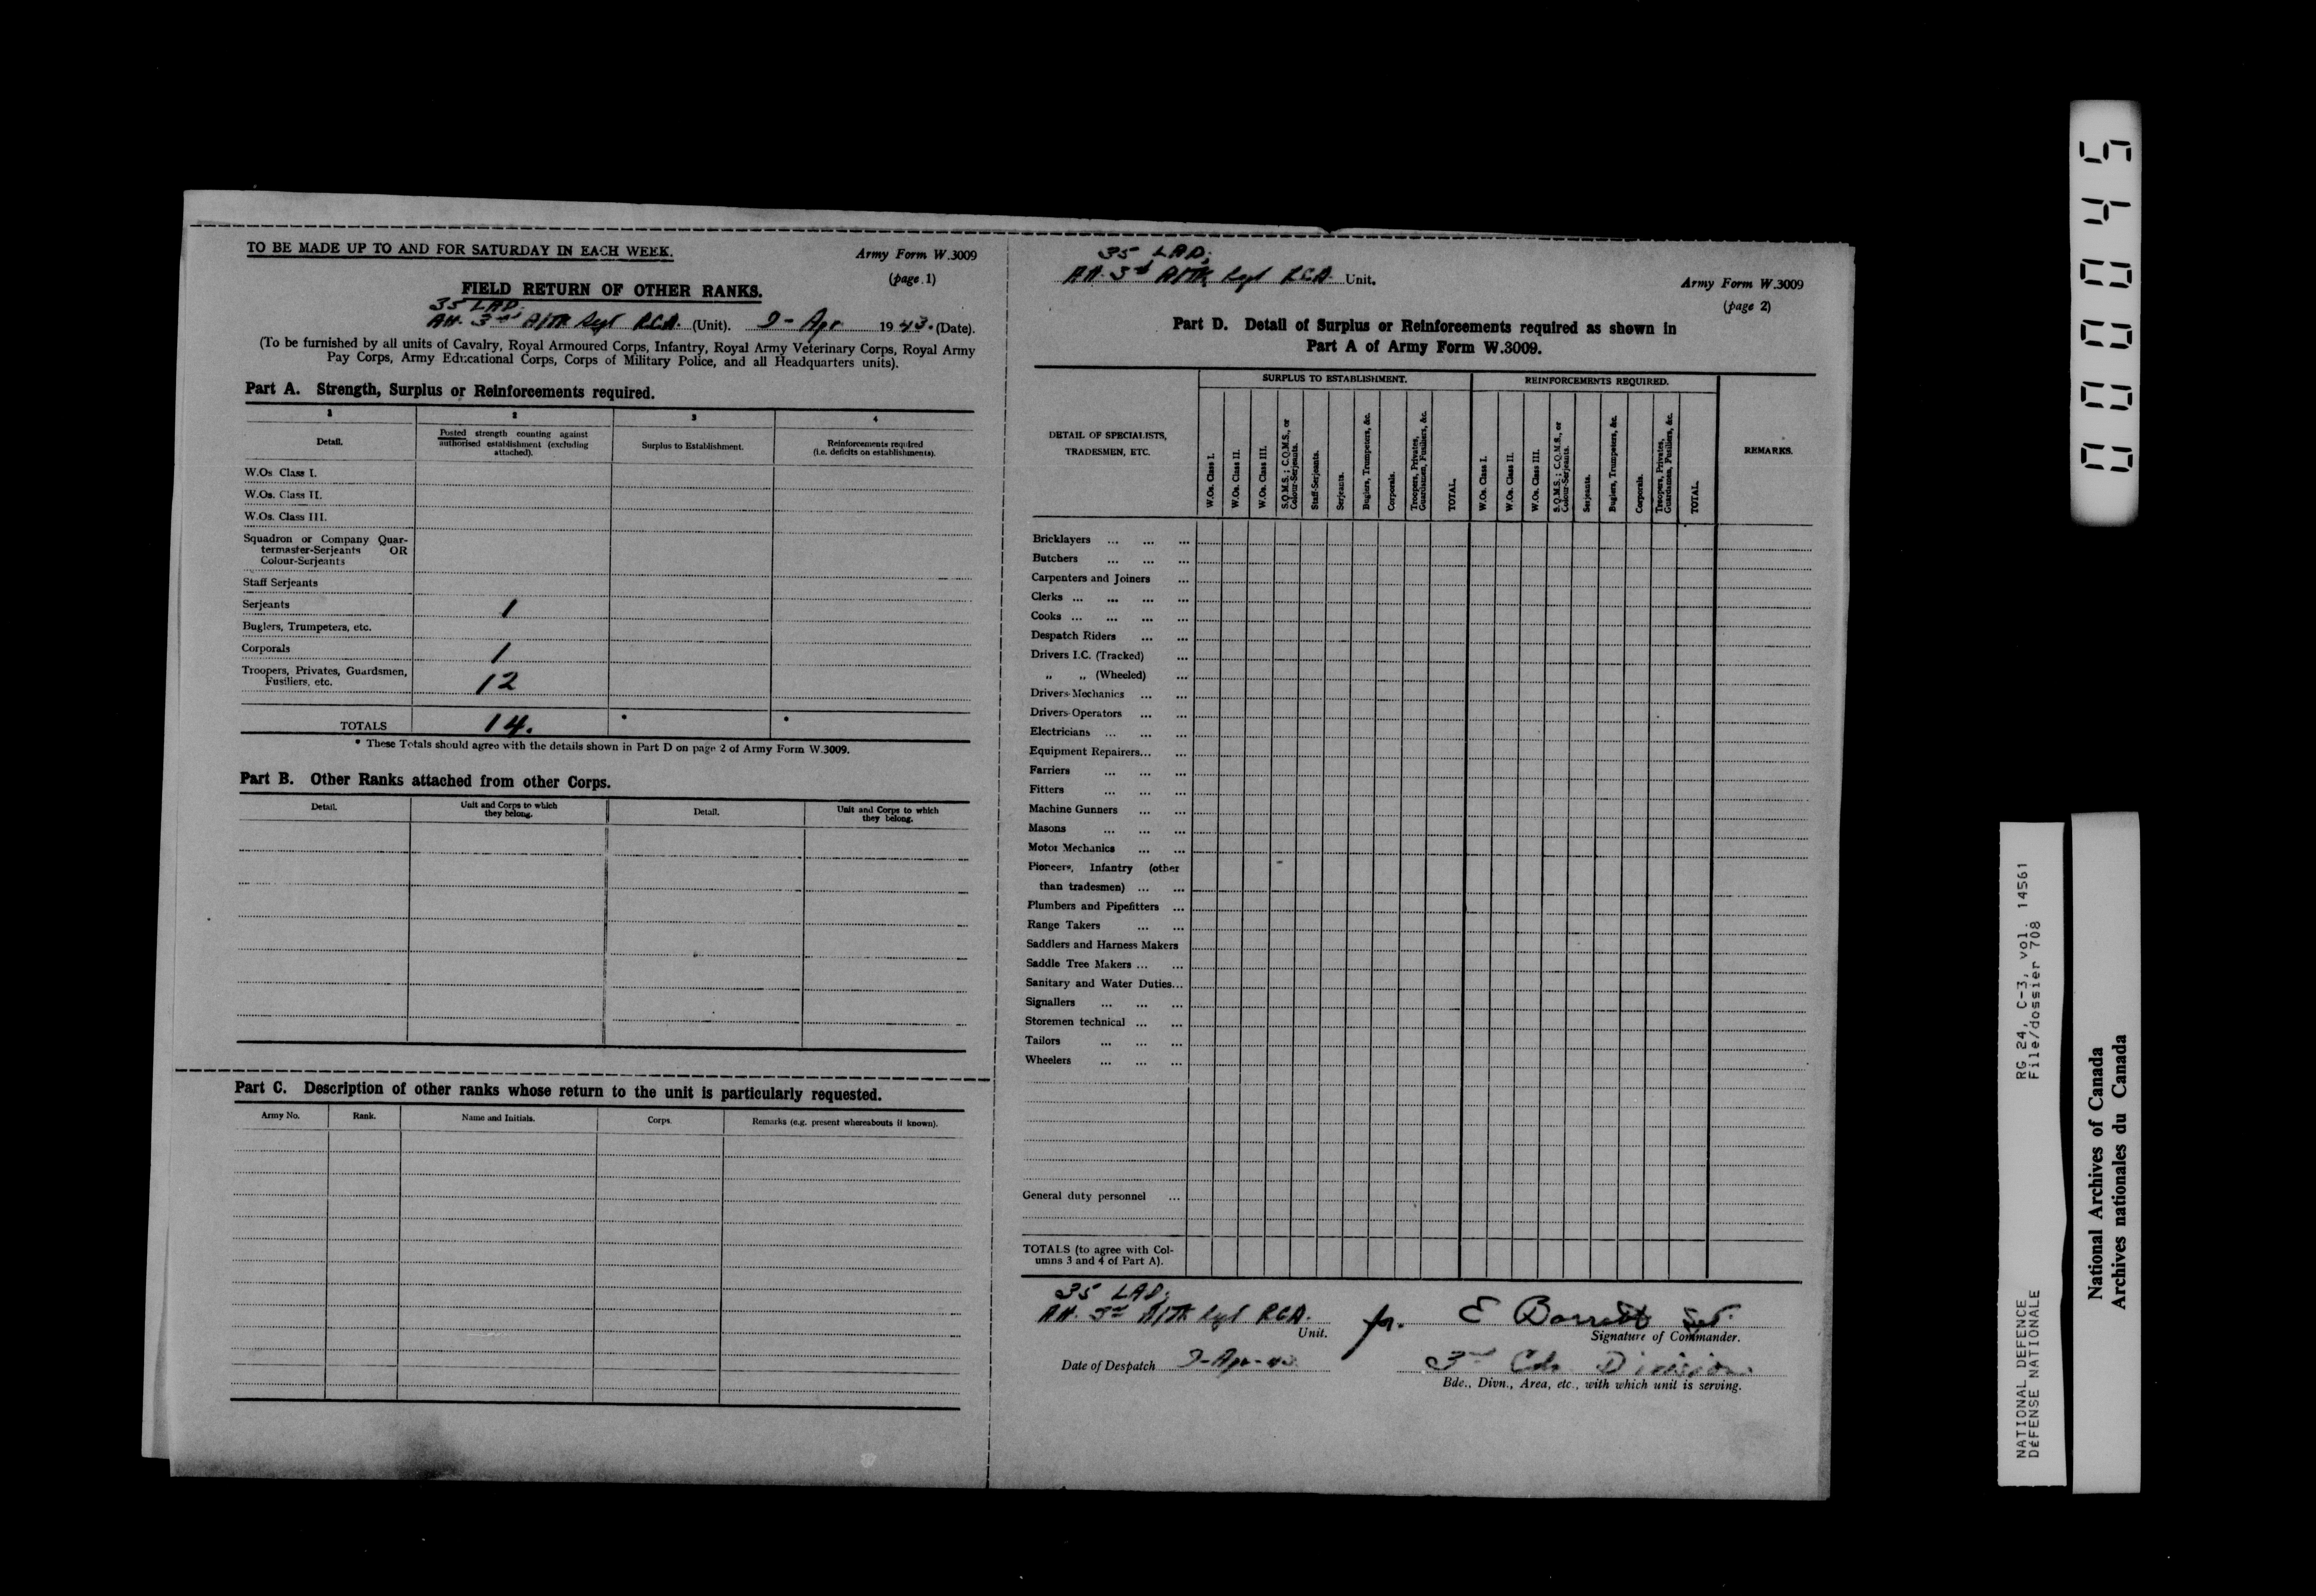 TO BE MADE UP TO AND FOR SATURDAY IN EACH WEEK.
Army Form W.3009
(page 1)
FIELD RETURN OF OTHER RANKS.
35 LAD.
Att. 3rd A/Tk Regt RCA. (Unit). 9-Apr 1943. (Date).
(To be furnished by all units of Cavalry, Royal Armoured Corps, Infantry, Royal Army Veterinary Corps, Royal Army
Pay Corps, Army Educational Corps, Corps of Military Police, and all Headquarters units).
Part A. Strength, Surplus or Reinforcements required.
1 2 3 4
Detail.
Posted strength counting against
authorised establishment (excluding
attached).
Surplus to Establishment.
Reinforcements required
(i.e. deficits on establishments).
W.Os. Class I.
W.Os. Class II.
W.Os. Class III.
Squadron or Company Quar-
termaster-Serjeants OR
Colour-Serjeants
Staff Serjeants
Serjeants 1
Buglers, Trumpeters, etc.
Corporals 1
Troopers, Privates, Guardsmen,
Fusiliers, etc. 12
TOTALS 14. * *
* These Totals should agree with the details shown in Part D on page 2 of Army Form W.3009.
Part B. Other Ranks attached from other Corps.
Detail.
Unit and Corps to which
they belong.
Detail.
Unit and Corps to which
they belong.
Part C. Description of other ranks whose return to the unit is particularly requested.
Army No. Rank. Name and Initials. Corps. Remarks (e.g. present whereabouts if known).
35 LAD,
Att. 3rd A/Tk Regt RCA. Unit.
Army Form W.3009
(page 2)
Part D. Detail of Surplus or Reinforcements required as shown in
Part A of Army Form W.3009.
DETAIL OF SPECIALISTS,
TRADESMEN, ETC.
SURPLUS TO ESTABLISHMENT.
W.Os. Class I.
W.Os. Class II.
W.Os. Class III.
S.Q.M.S.; C.Q.M.S., or
Colour-Serjeants.
Staff-Serjeants.
Serjeants.
Buglers, Trumpeters, &c.
Corporals.
Troopers, Privates,
Guardsmen, Fusiliers, &c.
TOTAL.
REINFORCEMENTS REQUIRED.
W.Os. Class I.
W.Os. Class II.
W.Os. Class III.
S.Q.M.S.; C.Q.M.S., or
Colour-Serjeants.
Serjeants.
Buglers, Trumpeters, &c.
Corporals.
Troopers, Privates,
Guardsmen, Fusiliers, &c.
TOTAL.
REMARKS.
Bricklayers ... ... ...
Butchers ... ... ...
Carpenters and Joiners ...
Clerks ... ... ... ...
Cooks ... ... ... ...
Despatch Riders ... ...
Drivers I.C. (Tracked) ...
„ „ (Wheeled) ...
Drivers-Mechanics ... ...
Drivers-Operators ... ...
Electricians ... ... ...
Equipment Repairers... ...
Farriers ... ... ...
Fitters ... ... ...
Machine Gunners ... ...
Masons ... ... ...
Motor Mechanics ... ...
Pioneers, Infantry (other
than tradesmen) ... ...
Plumbers and Pipefitters ...
Range Takers ... ...
Saddlers and Harness Makers
Saddle Tree Makers ... ...
Sanitary and Water Duties...
Signallers ... ... ...
Storemen technical ... ...
Tailors ... ... ...
Wheelers ... ... ...
General duty personnel ...
TOTALS (to agree with Col-
umns 3 and 4 of Part A).
35 LAD,
Att. 3rd A/Tk Regt RCA.
Unit.
for. E Barrett Sgt.
Signature of Commander.
Date of Despatch 9-Apr-43
3rd Cdn Division.
Bde., Divn., Area, etc., with which unit is serving.
000045
NATIONAL DEFENCE RG 24, C-3, vol. 14561
DÉFENSE NATIONALE File/dossier 708
National Archives of Canada
Archives nationales du Canada